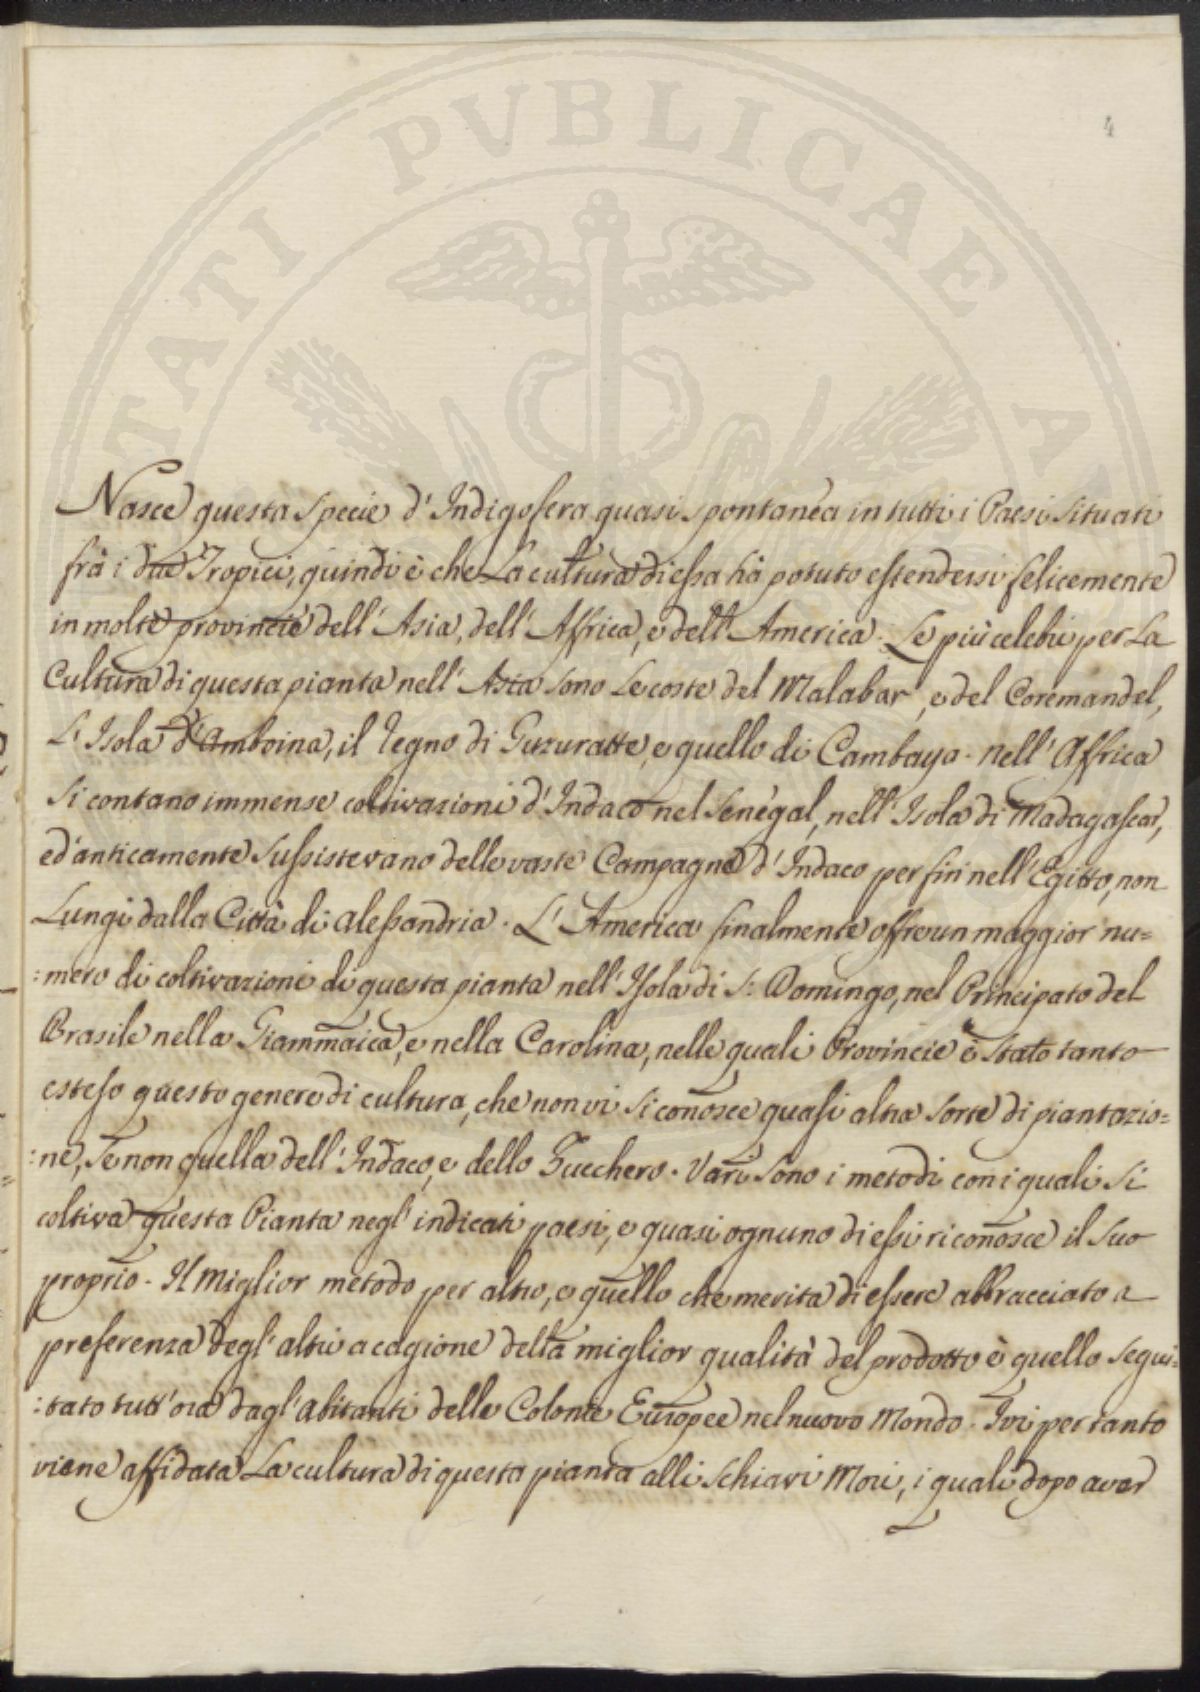 TATI PUBLICAE A
4
Nasce questa specie d'Indigofera quasi spontanea in tutti i Paesi situati
frà i due Tropici, quindi è che La cultura di essa hà potuto estendersi felicemente
in molte provincie dell'Asia, dell'Affrica, e dell'America. Le più celebri per La
Cultura di questa pianta nell'Asia sono Le coste del Malabar, e del Coremandel,
L'Isola d'Amboina, il Regno di Guzuratte, e quello di Cambaya. nell'Affrica
si contano immense coltivazioni d'Indaco nel Senegal, nell'Isola di Madagascar,
ed anticamente sussistevano delle vaste Campagne d'Indaco per fin nell'Egitto, non
Lungi dalla Città di Alessandria. L'America finalmente offre un maggior nu=
:mero di coltivazioni di questa pianta nell'Isola di S: Domingo, nel Principato del
Brasile nella Giammaica, e nella Carolina, nelle quali Provincie è stato tanto
esteso questo genere di cultura, che non vi si conosce quasi altra sorte di piantazio=
:ne, se non quella dell'Indaco, e dello Zucchero. Varj sono i metodi con i quali si
coltiva questa Pianta negl'indicati paesi, e quasi ognuno di essi riconosce il suo
proprio. Il Miglior metodo per altro, e quello che merita di essere abbracciato a
preferenza degl'altri a cagione della miglior qualità del prodotto è quello segui=
:tato tutt'ora dagl'abitanti delle Colonie Europee nel nuovo Mondo. Ivi per tanto
viene affidata La cultura di questa pianta alli schiavi Mori, i quali dopo aver